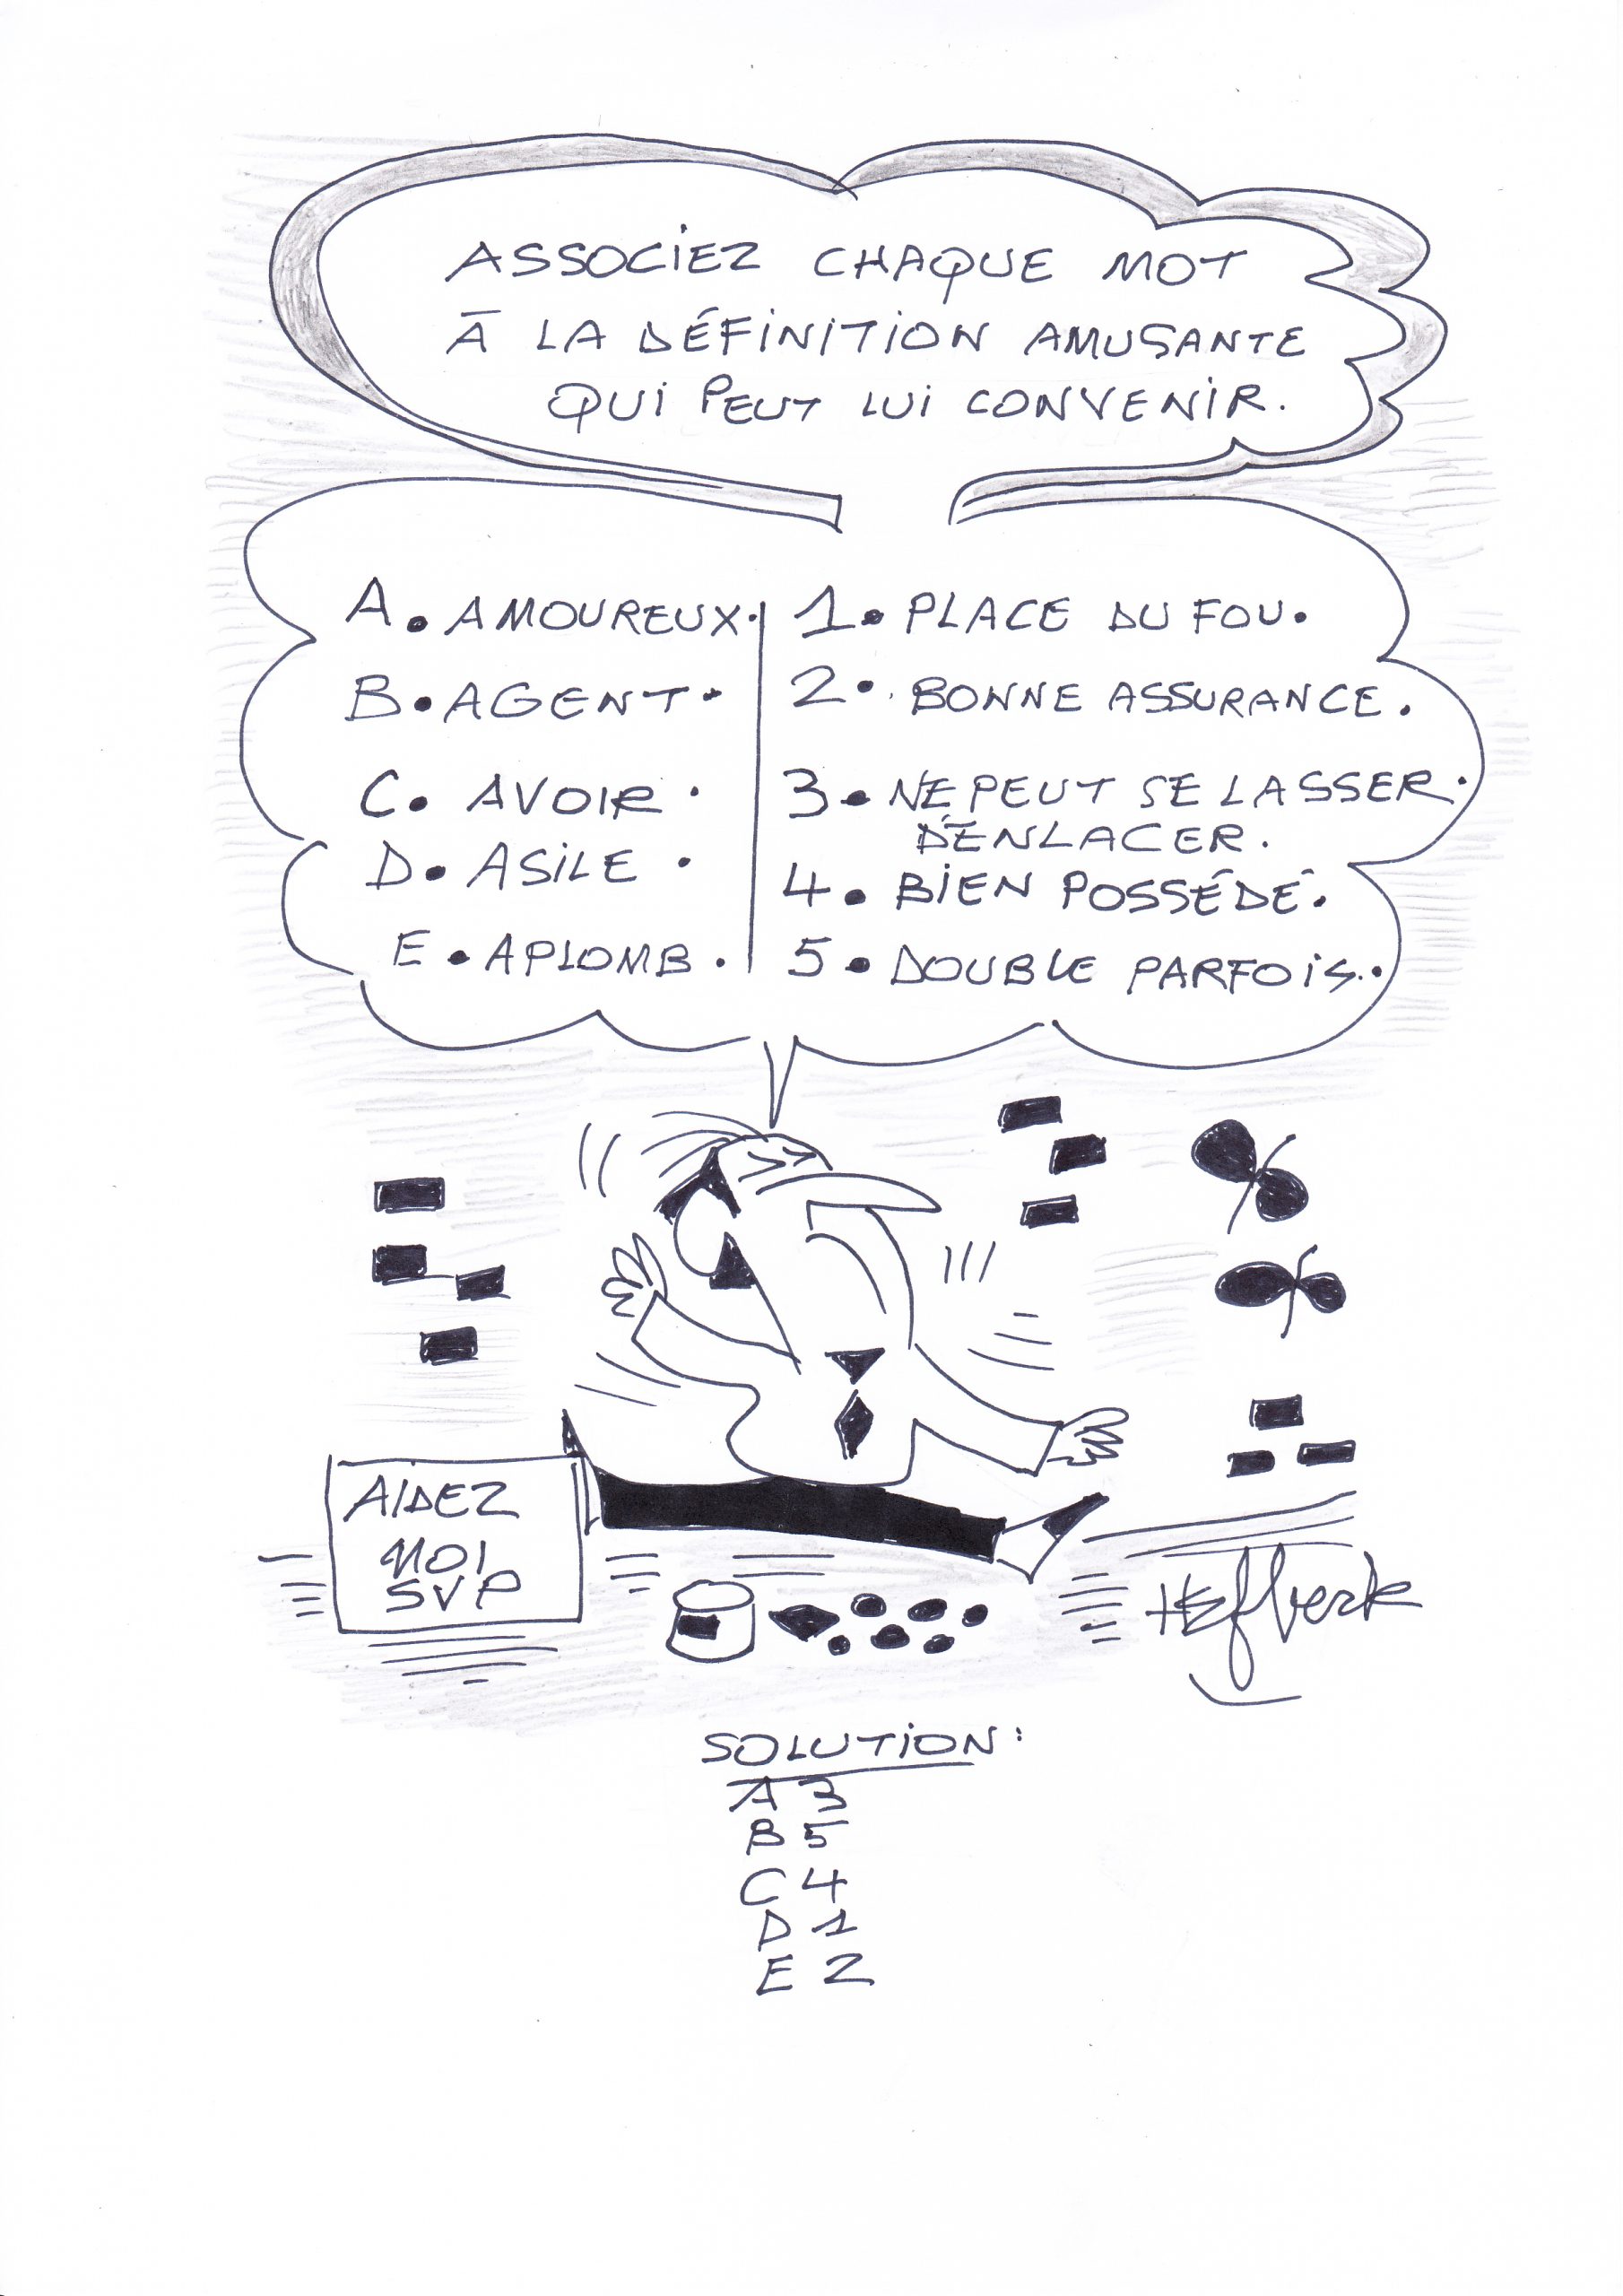 ASSOCIEZ CHAQUE MOT
À LA DÉFINITION AMUSANTE
QUI PEUT LUI CONVENIR.
A. AMOUREUX.
B. AGENT.
C. AVOIR.
D. ASILE.
E. APLOMB.
1. PLACE DU FOU.
2. BONNE ASSURANCE.
3. NE PEUT SE LASSER
D'ENLACER.
4. BIEN POSSÉDÉ.
5. DOUBLE PARFOIS.
AIDEZ
MOI
SVP
SOLUTION :
A 3
B 5
C 4
D 1
E 2